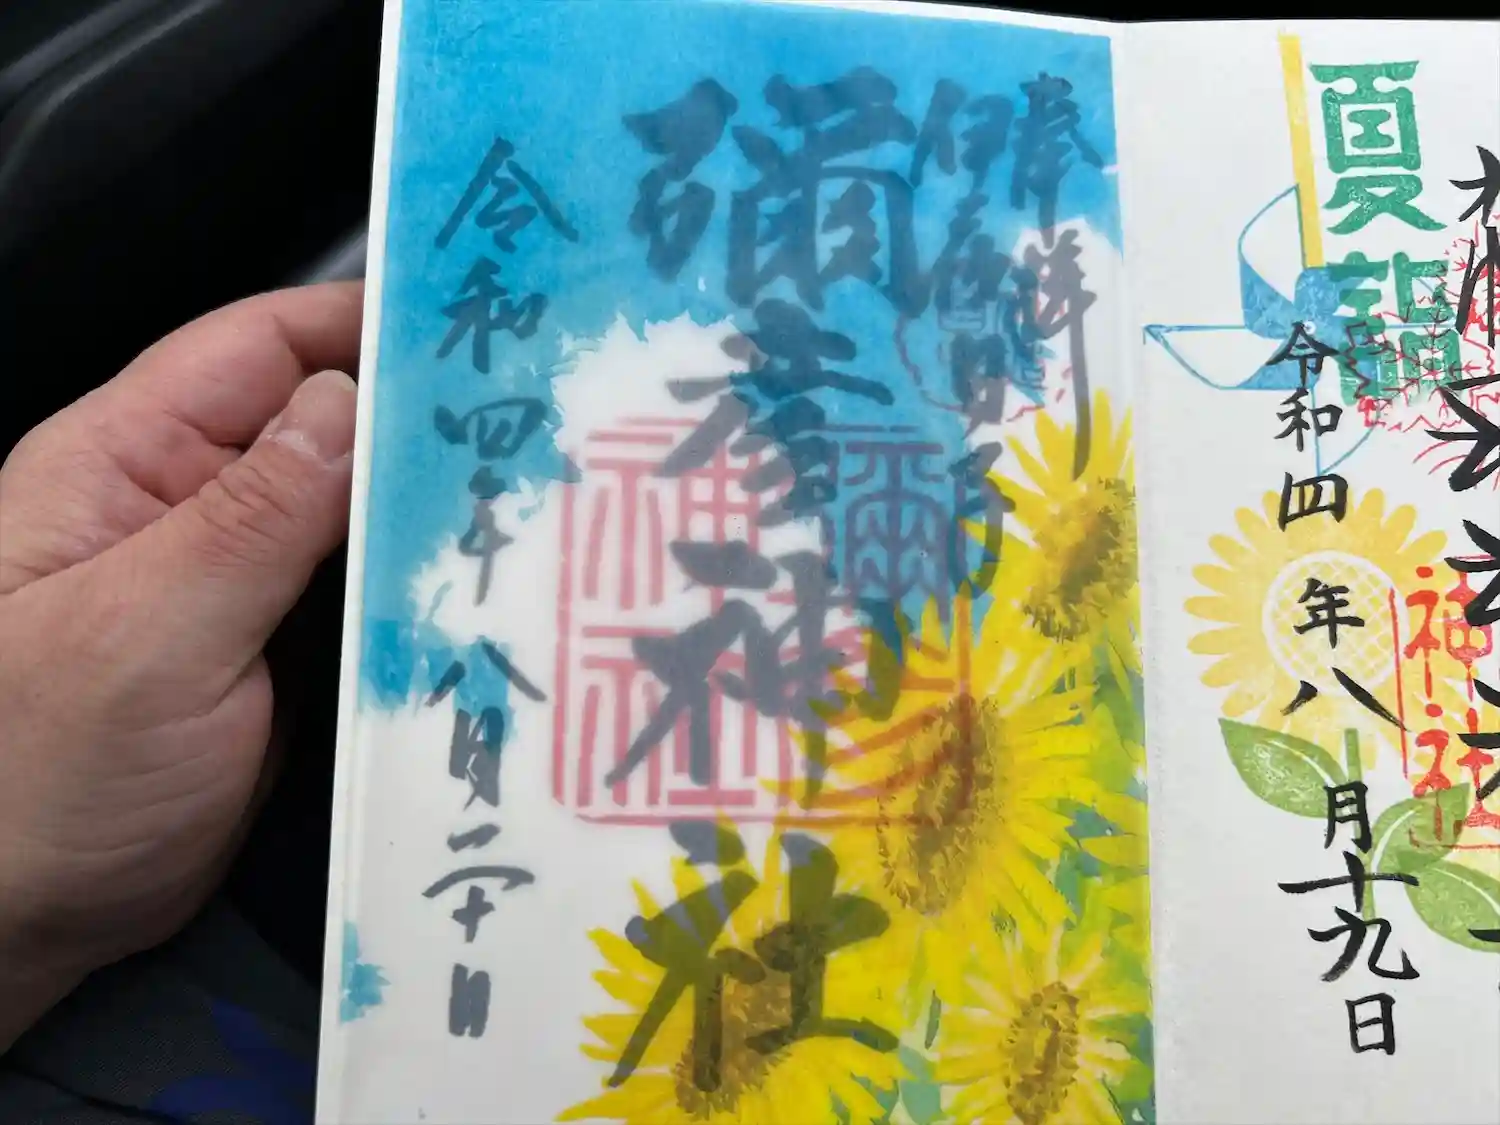 夏詣
神社
令和四年八月十九日
奉拝
伊夜日子
彌彦神社
令和四年八月二十日